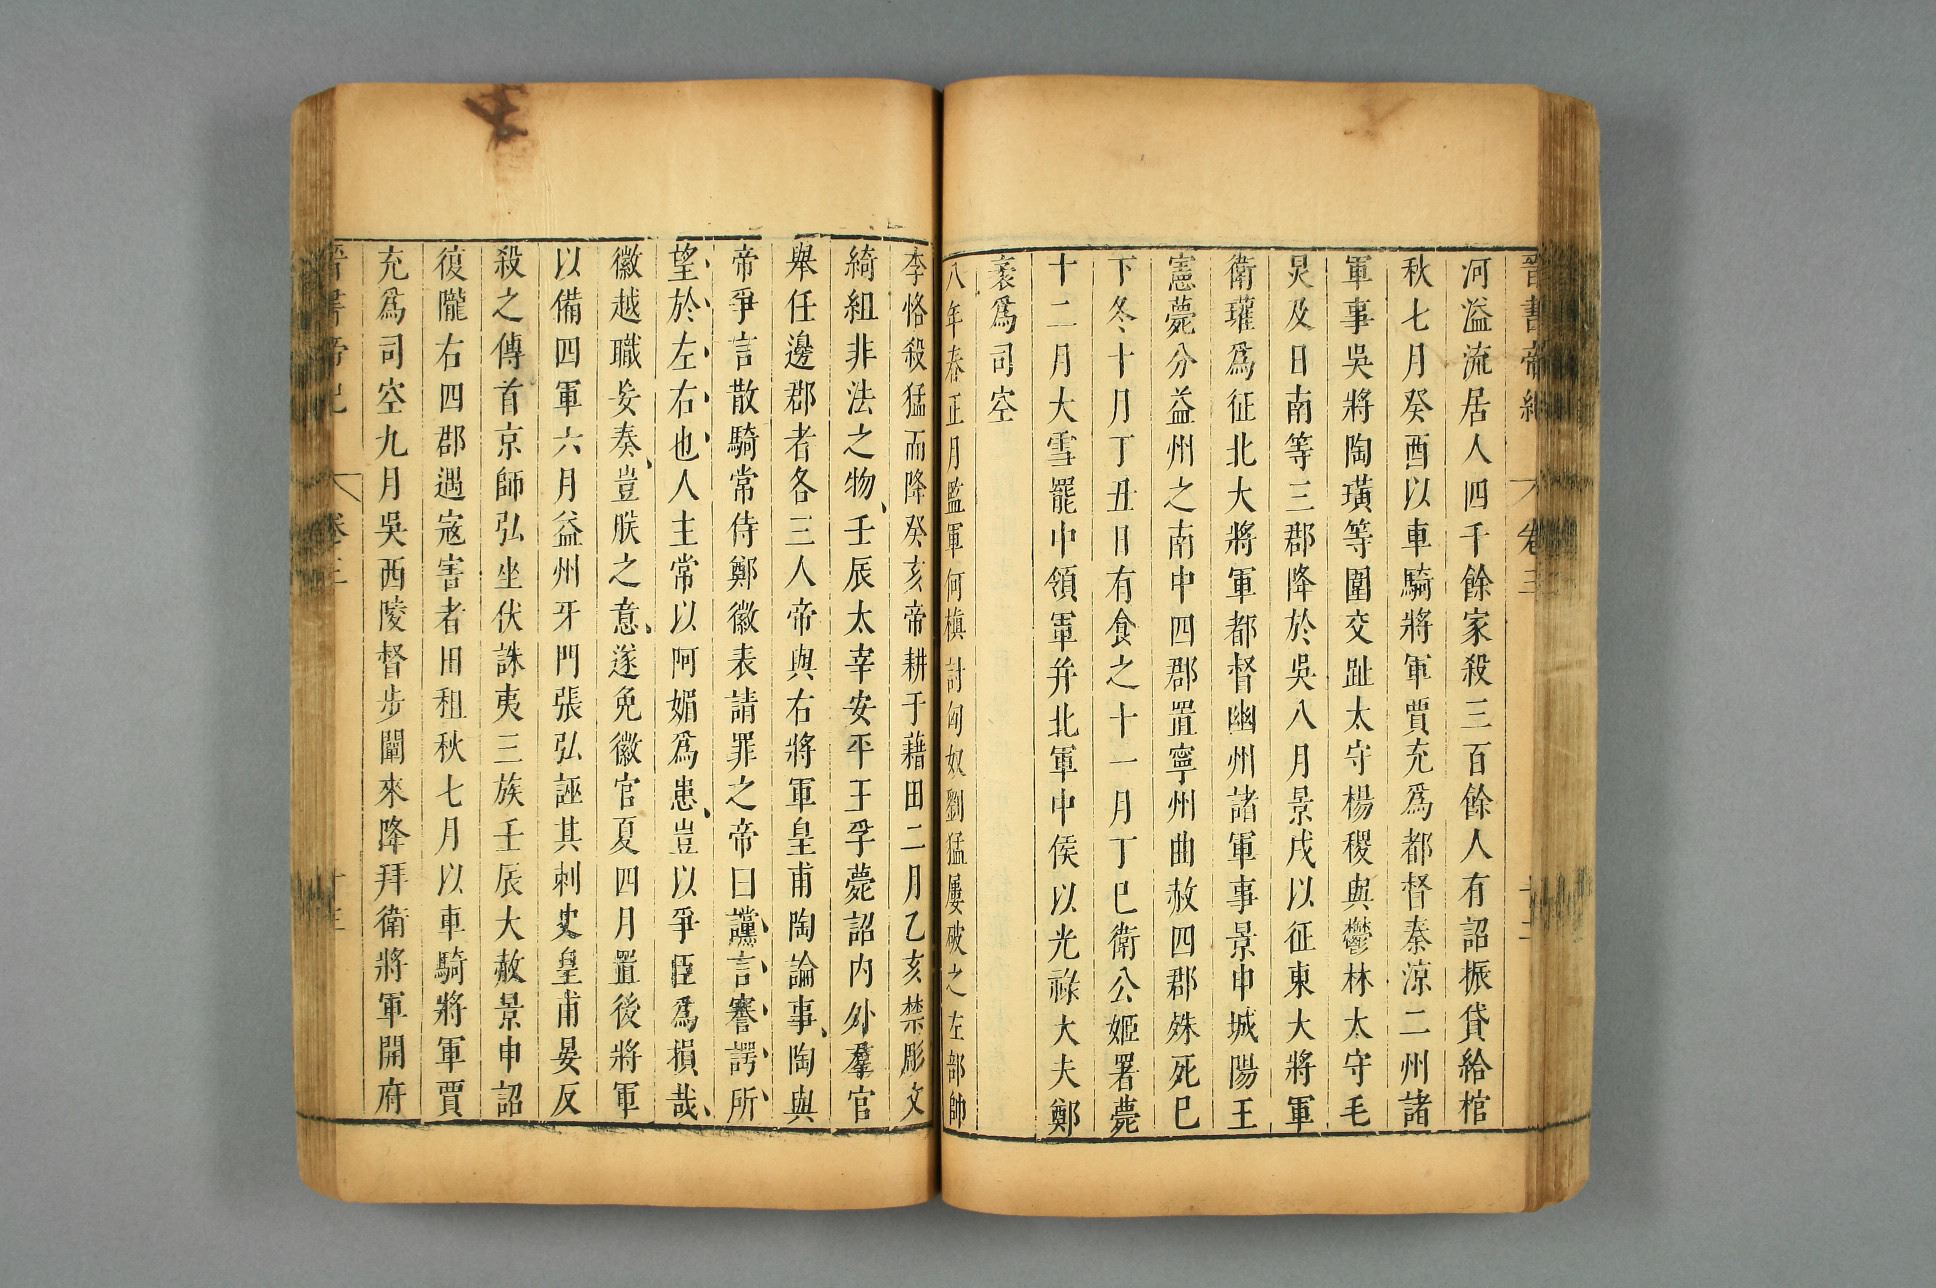 晉書帝紀 卷三
河溢流居人四千餘家殺三百餘人有詔振貸給棺
秋七月癸酉以車騎將軍賈充爲都督秦涼二州諸
軍事吳將陶璜等圍交趾太守楊稷與鬱林太守毛
炅及日南等三郡降於吳八月景戌以征東大將軍
衛瓘爲征北大將軍都督幽州諸軍事景申城陽王
憲薨分益州之南中四郡置寧州曲赦四郡殊死已
下冬十月丁丑日有食之十一月丁巳衛公姬署薨
十二月大雪罷中領軍幷北軍中侯以光祿大夫鄭
袤爲司空
八年春正月監軍何楨討匈奴劉猛屢破之左部帥
李恪殺猛而降癸亥帝耕于藉田二月乙亥禁彫文
綺組非法之物壬辰太宰安平王孚薨詔內外羣官
舉任邊郡者各三人帝與右將軍皇甫陶論事陶與
帝爭言散騎常侍鄭徽表請罪之帝曰讜言謇諤所
望於左右也人主常以阿媚爲患豈以爭臣爲損哉
徽越職妄奏豈朕之意遂免徽官夏四月置後將軍
以備四軍六月益州牙門張弘誣其刺史皇甫晏反
殺之傳首京師弘坐伏誅夷三族壬辰大赦景申詔
復隴右四郡遇寇害者田租秋七月以車騎將軍賈
充爲司空九月吳西陵督步闡來降拜衛將軍開府
晉書帝紀 卷三